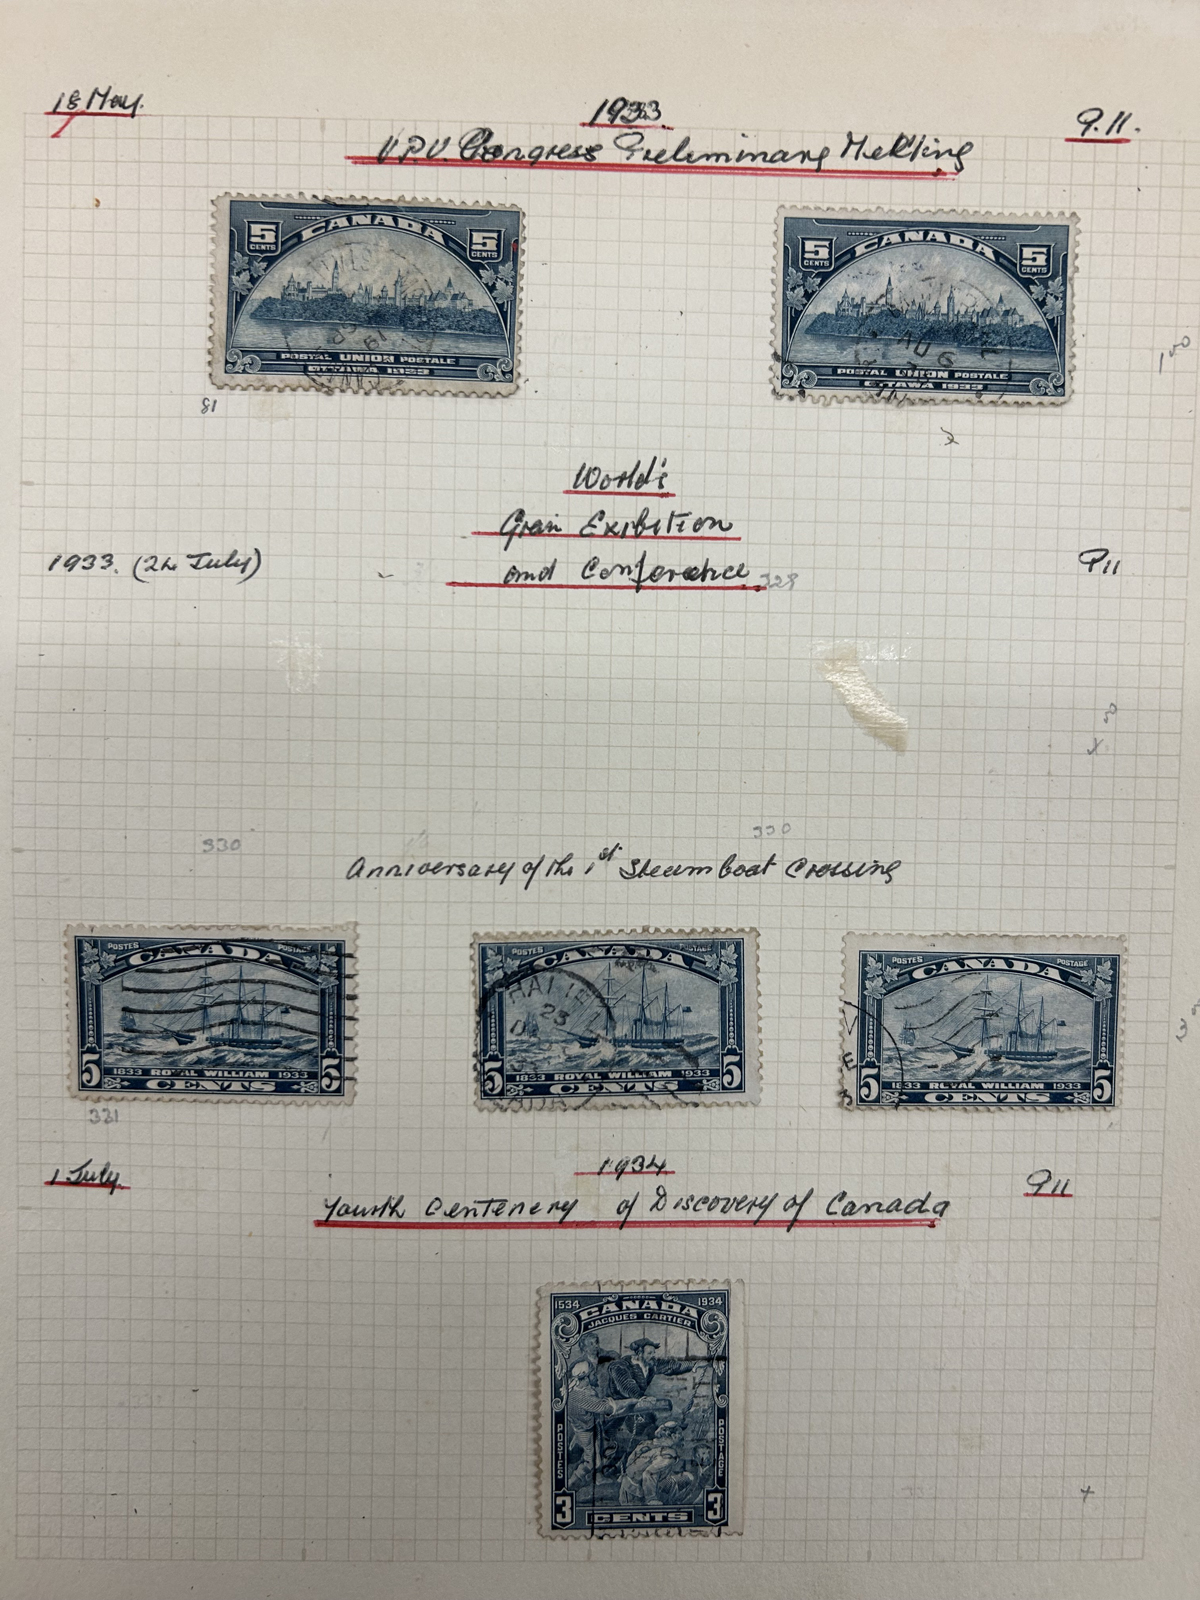 18 May.
1933.
P.11.
U.P.U. Congress Preliminary Meeting
5 CENTS CANADA 5 CENTS
POSTAL UNION POSTALE
OTTAWA 1933
5 CENTS CANADA 5 CENTS
AU 6
POSTAL UNION POSTALE
OTTAWA 1933
18
World's
Grain Exibition
1933. (24 July)
and Conference
329
P11
330
330
Anniversary of the 1st Steamboat Crossing
POSTES CANADA POSTAGE
5 1833 ROYAL WILLIAM 1933 5
CENTS
POSTES CANADA POSTAGE
23
5 1833 ROYAL WILLIAM 1933 5
CENTS
POSTES CANADA POSTAGE
5 1833 ROYAL WILLIAM 1933 5
CENTS
331
1 July.
1934
P11
Fourth Centenery of Discovery of Canada
1534 CANADA 1934
JACQUES CARTIER
POSTES
POSTAGE
3 CENTS 3